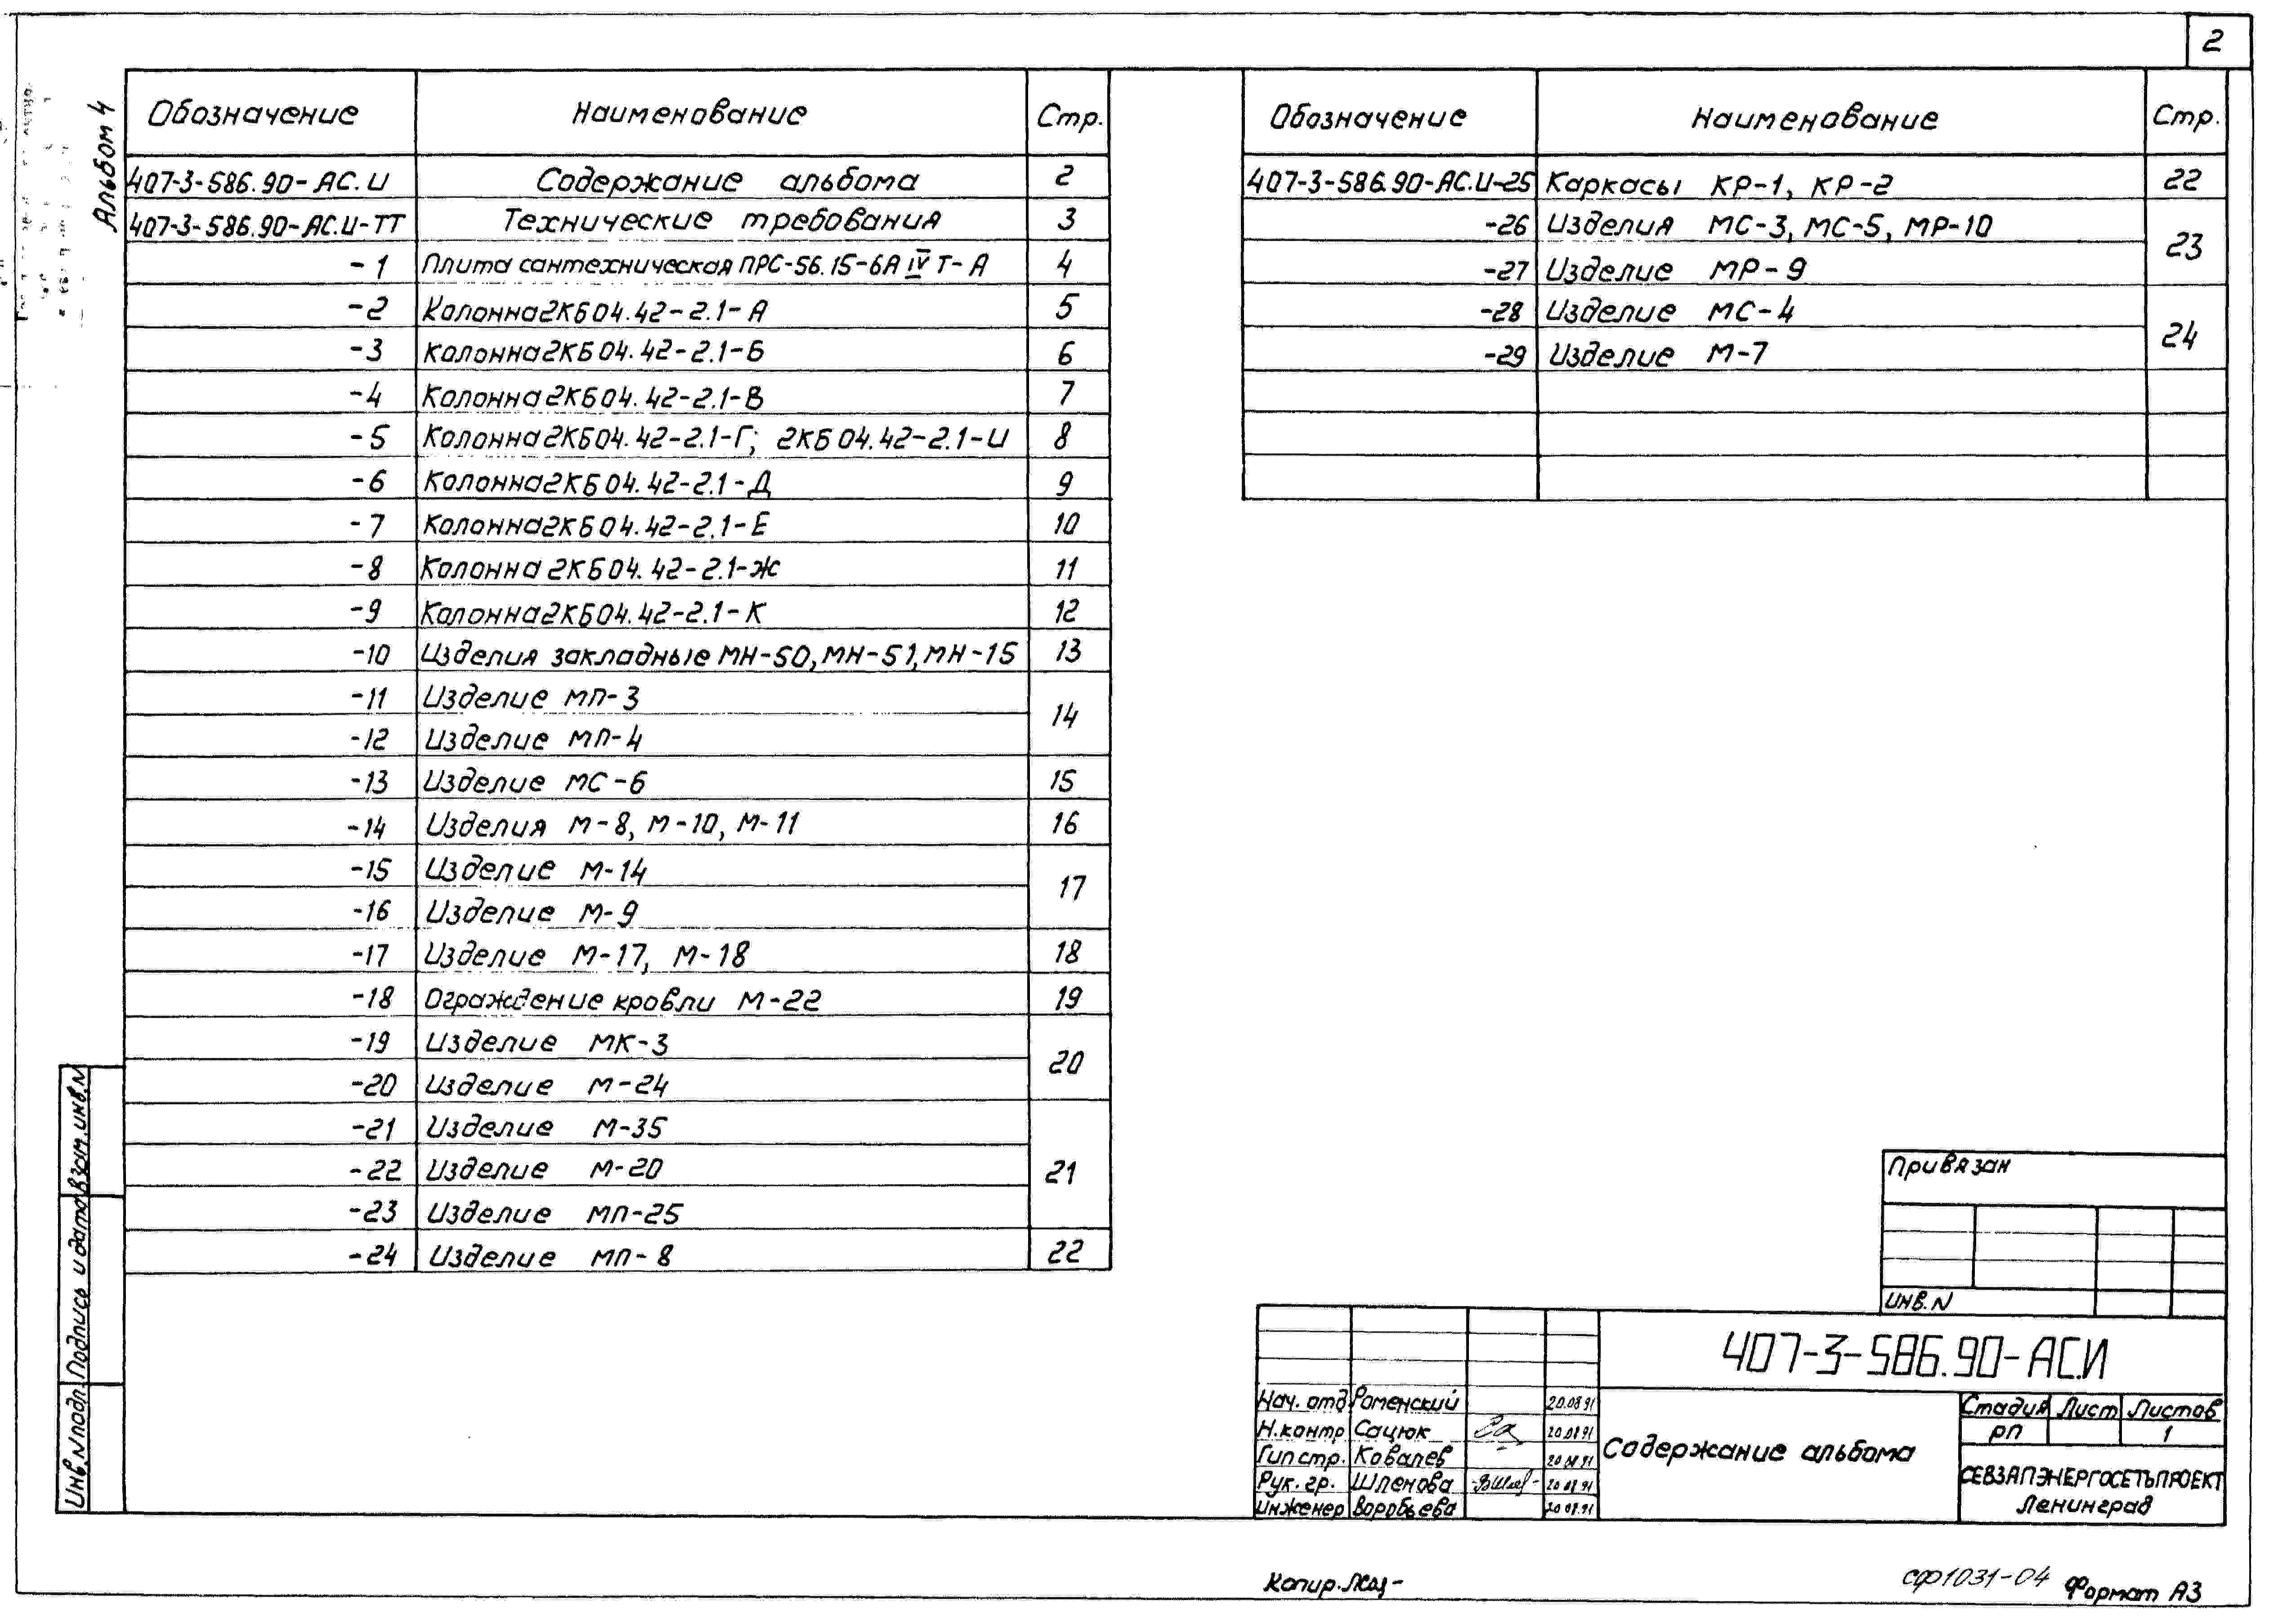 2
Альбом 4
Обозначение Наименование Стр.
407-3-586.90-АС.И Содержание альбома 2
407-3-586.90-АС.И-ТТ Технические требования 3
-1 Плита сантехническая ПРС-56.15-6А IV Т-А 4
-2 Колонна 2КБ04.42-2.1-А 5
-3 Колонна 2КБ04.42-2.1-Б 6
-4 Колонна 2КБ04.42-2.1-В 7
-5 Колонна 2КБ04.42-2.1-Г; 2КБ04.42-2.1-И 8
-6 Колонна 2КБ04.42-2.1-Д 9
-7 Колонна 2КБ04.42-2.1-Е 10
-8 Колонна 2КБ04.42-2.1-Ж 11
-9 Колонна 2КБ04.42-2.1-К 12
-10 Изделия закладные МН-50, МН-51, МН-15 13
-11 Изделие МП-3 14
-12 Изделие МП-4
-13 Изделие МС-6 15
-14 Изделия М-8, М-10, М-11 16
-15 Изделие М-14 17
-16 Изделие М-9
-17 Изделие М-17, М-18 18
-18 Ограждение кровли М-22 19
-19 Изделие МК-3 20
-20 Изделие М-24
-21 Изделие М-35 21
-22 Изделие М-20
-23 Изделие МП-25
-24 Изделие МП-8 22
Обозначение Наименование Стр.
407-3-586.90-АС.И-25 Каркасы КР-1, КР-2 22
-26 Изделия МС-3, МС-5, МР-10 23
-27 Изделие МР-9
-28 Изделие МС-4 24
-29 Изделие М-7
Взам. инв. N
Подпись и дата
Инв. N подл.
Привязан
ИНВ. N
407-3-586.90-АС.И
Нач. отд Роменский 20.08.91
Н.контр Сацюк 20.08.91
Гип стр. Ковалев 20.08.91
Рук. гр. Шленова 20.08.91
Инженер Воробьева 20.08.91
Содержание альбома
Стадия Лист Листов
РП 1
СЕВЗАПЭНЕРГОСЕТЬПРОЕКТ
Ленинград
Копир.
сф1031-04
Формат А3